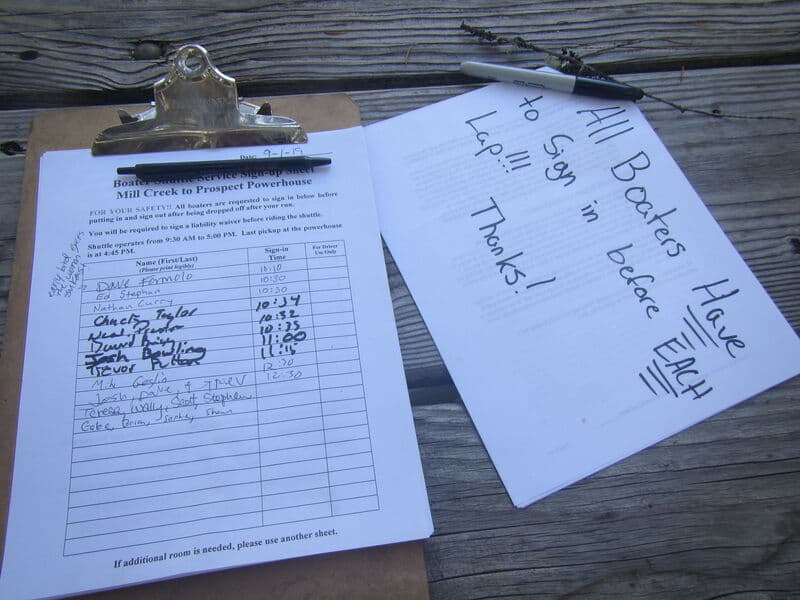 Date: 9-1-19
Boater Shuttle Service Sign-up Sheet
Mill Creek to Prospect Powerhouse
FOR YOUR SAFETY!! All boaters are requested to sign in below before
putting in and sign out after being dropped off after your run.
You will be required to sign a liability waiver before riding the shuttle.
Shuttle operates from 9:30 AM to 5:00 PM. Last pickup at the powerhouse
is at 4:45 PM.
Name (First/Last)
(Please print legibly)
Sign-in
Time
For Driver
Use Only
Dave Formolo 10:10
Ed Stephan 10:30
Nathan Curry 10:30
Chuck Taylor 10:34
10:32
David 10:35
Josh Bowling 11:00
Trevor 11:15
12:30
Josh, Dave, & Trev 12:30
Teresa, Wally, Scott, Stephen
Gabe, Brian, Shawn
If additional room is needed, please use another sheet.
All Boaters Have
to Sign in before EACH
Lap!!!
Thanks!